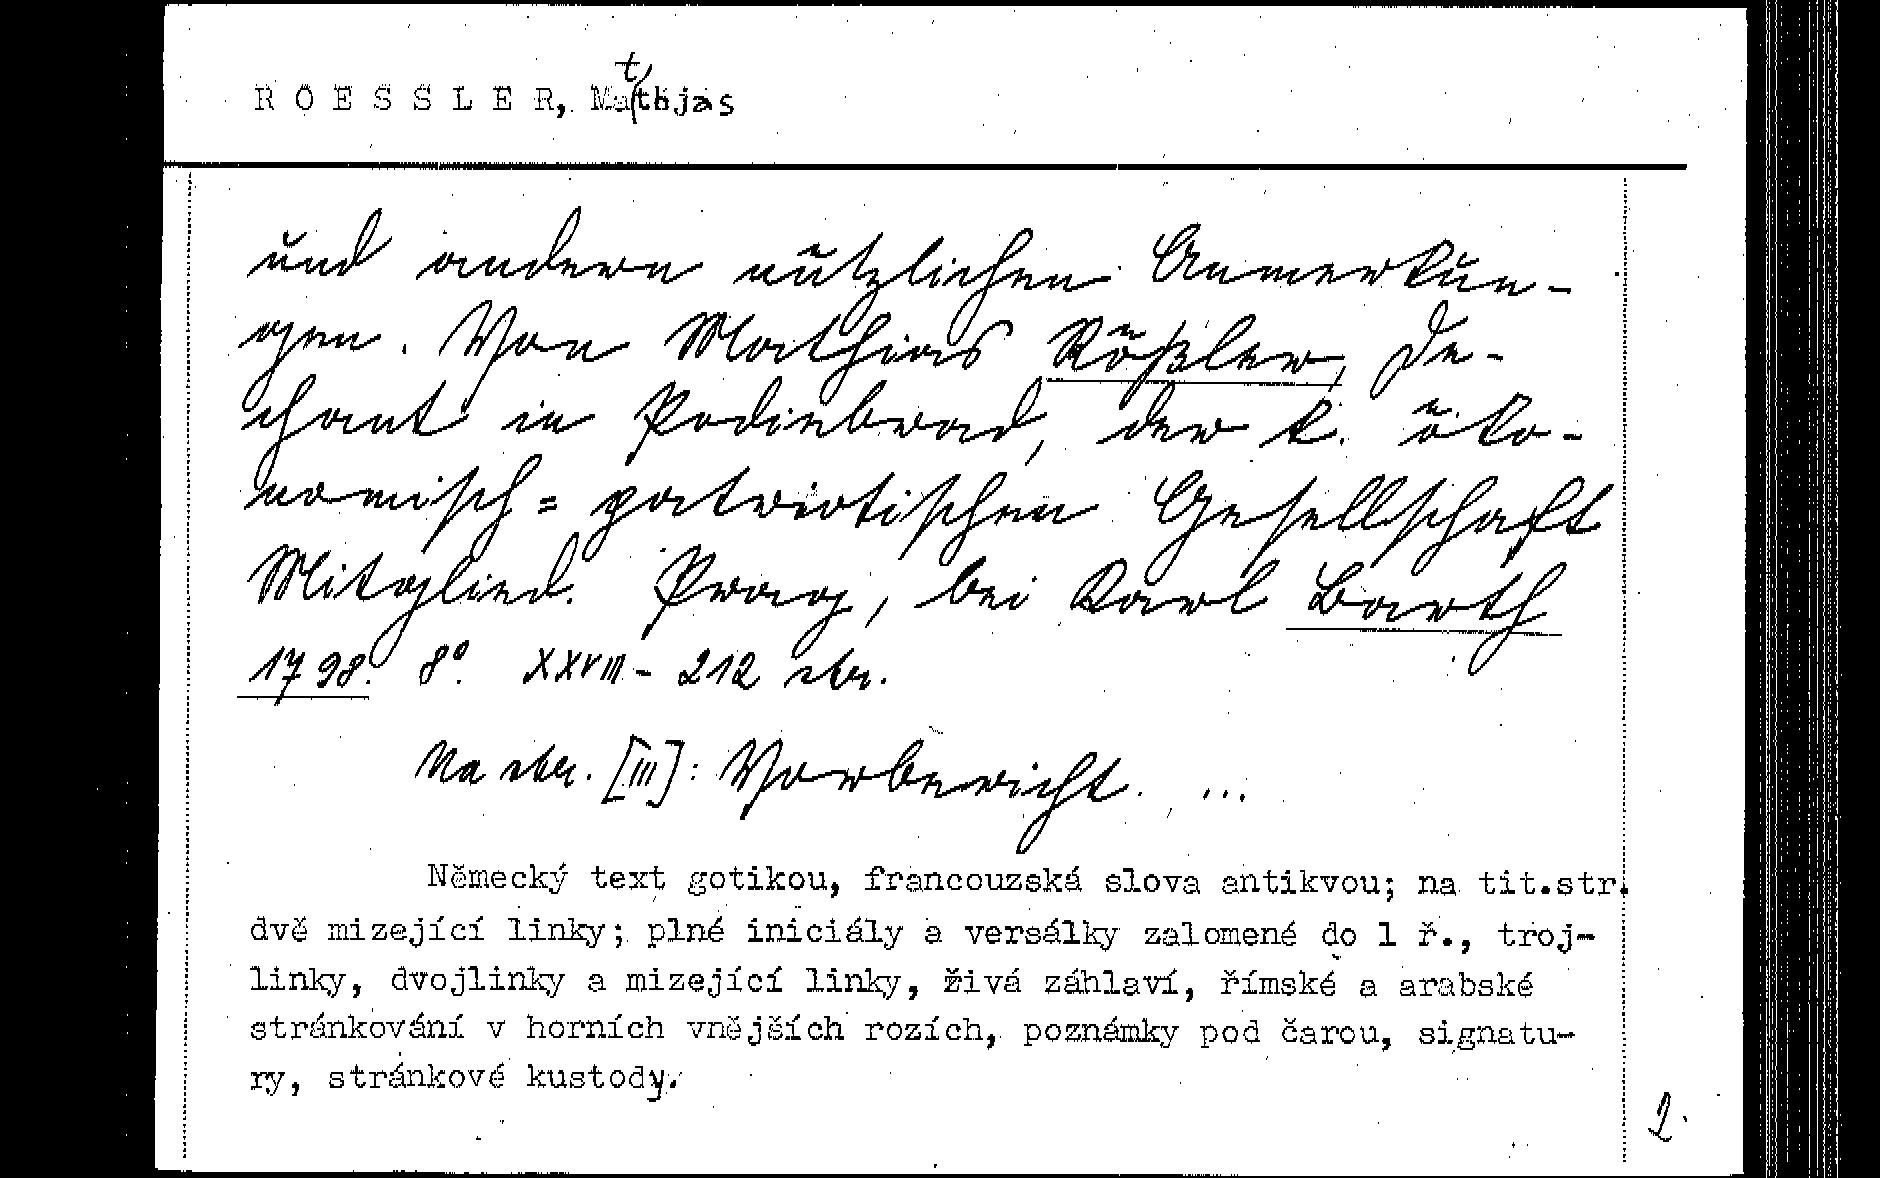 ROESSLER, Matthjas
und andern nützlichen Anmerkun-
gen. Von Mathias Rößler, De-
chant in Podiebrad, der k. öko-
nomisch=patriotischen Gesellschaft
Mitglied. Prag, bei Karl Barth
1798. 8°. XXVIII - 212 str.
Na str. [III]: Vorbericht. ...
Německý text gotikou, francouzská slova antikvou; na tit.str.
dvě mizející linky; plné iniciály a versálky zalomené do 1 ř., troj-
linky, dvojlinky a mizející linky, živá záhlaví, římské a arabské
stránkování v horních vnějších rozích, poznámky pod čarou, signatu-
ry, stránkové kustody.
2.